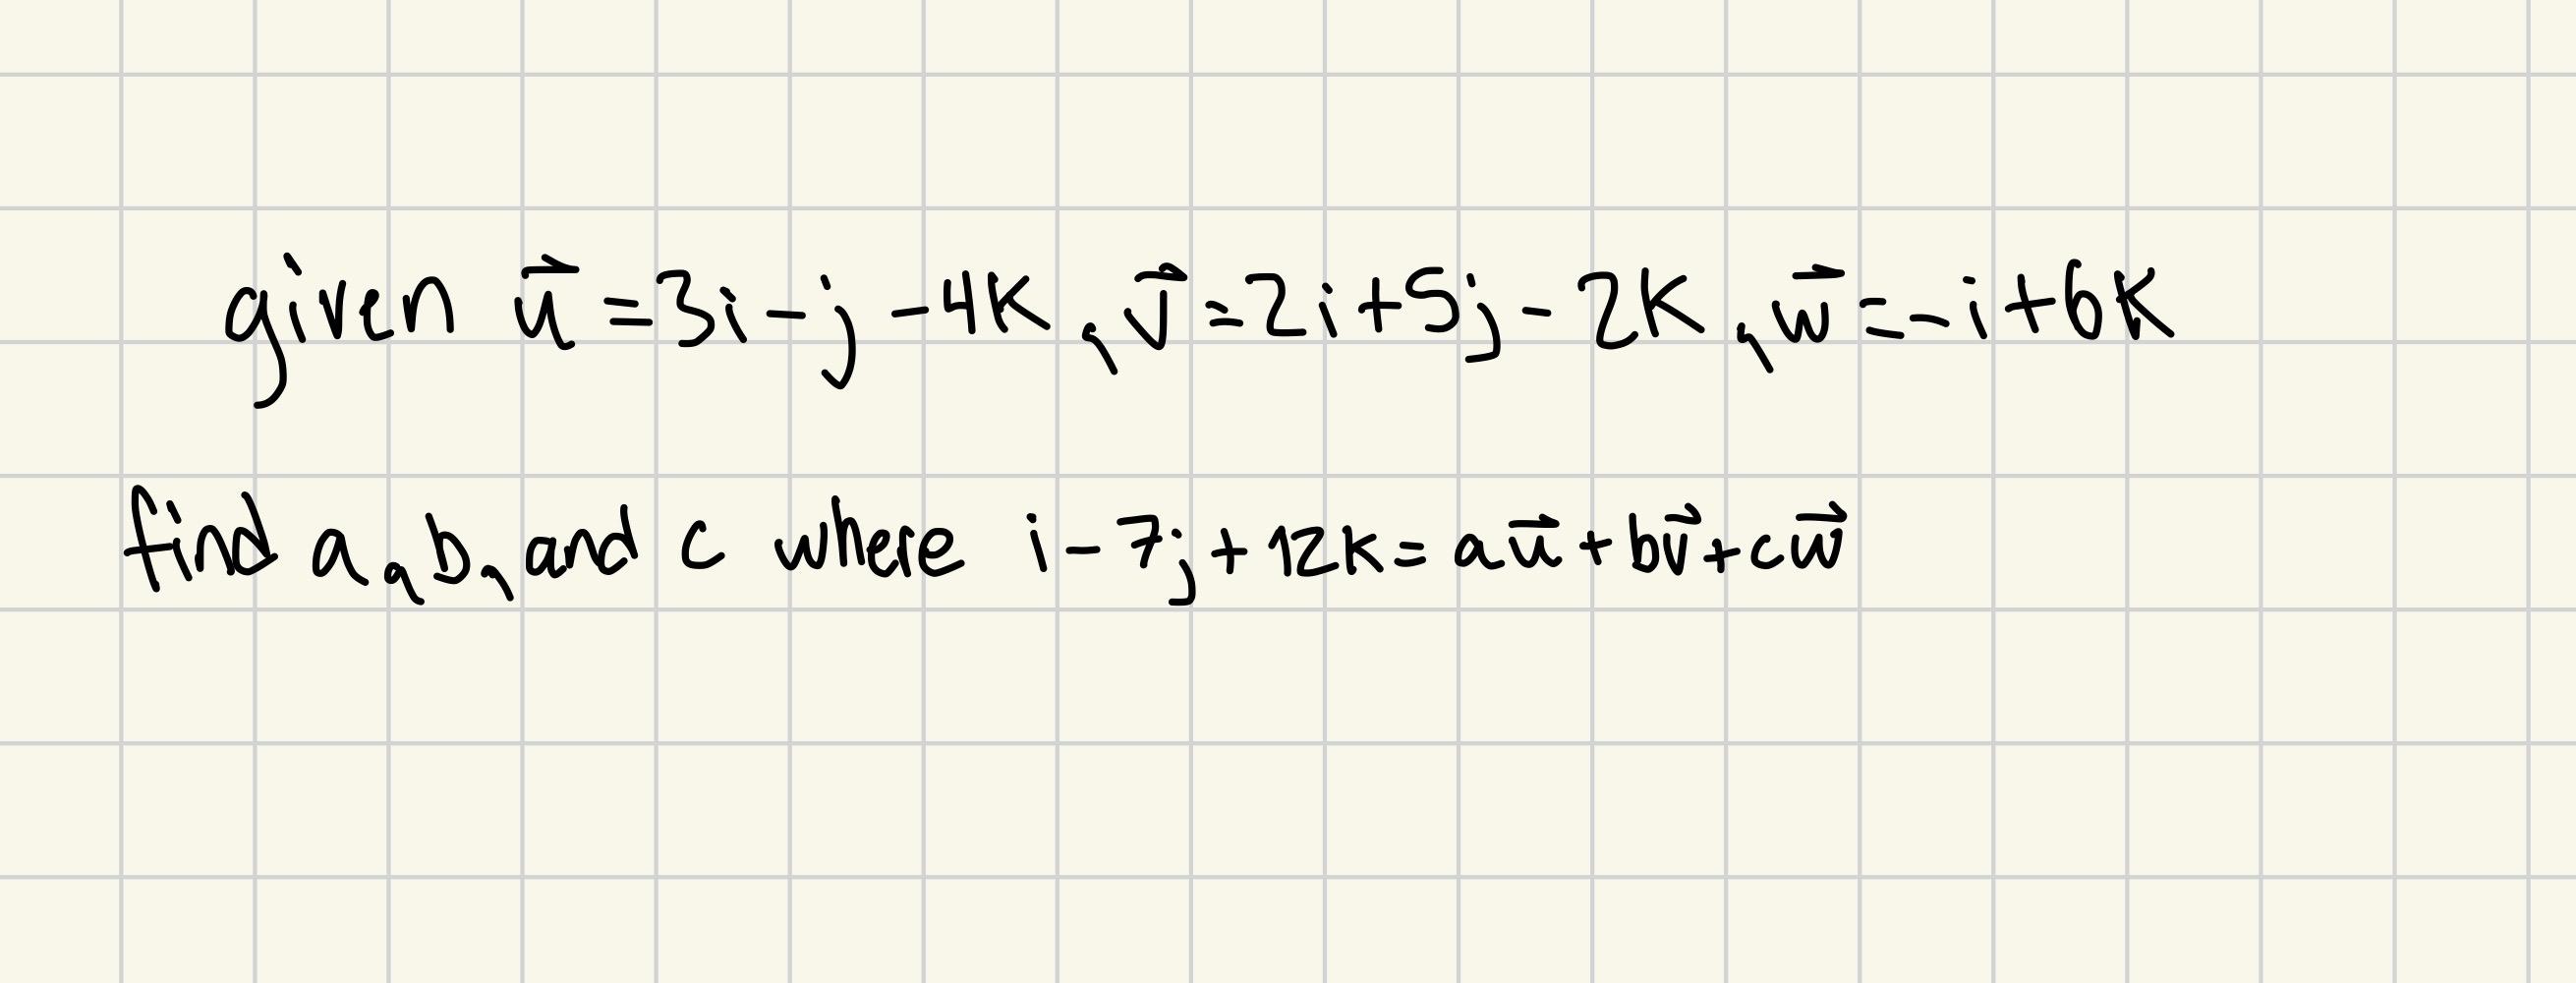 given u⃗ = 3i - j - 4k, v⃗ = 2i + 5j - 2k, w⃗ = -i + 6k
find a, b, and c where i - 7j + 12k = au⃗ + bv⃗ + cw⃗